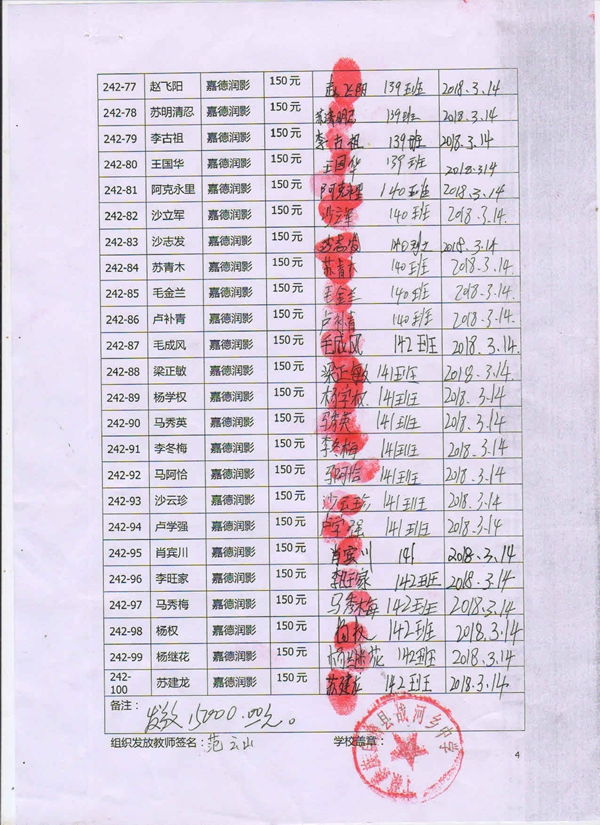 242-77 赵飞阳 嘉德润影 150元 赵飞阳 139班 2018.3.14
242-78 苏明清忍 嘉德润影 150元 139班 2018.3.14
242-79 李古祖 嘉德润影 150元 李古祖 139班 2018.3.14
242-80 王国华 嘉德润影 150元 王国华 139班 2018.3.14
242-81 阿克永里 嘉德润影 150元 阿克永里 140班 2018.3.14
242-82 沙立军 嘉德润影 150元 沙立军 140班 2018.3.14
242-83 沙志发 嘉德润影 150元 沙志发 140班 2018.3.14
242-84 苏青木 嘉德润影 150元 苏青木 140班 2018.3.14
242-85 毛金兰 嘉德润影 150元 毛金兰 140班 2018.3.14
242-86 卢补青 嘉德润影 150元 卢补青 140班 2018.3.14
242-87 毛成风 嘉德润影 150元 毛成风 142班 2018.3.14
242-88 梁正敏 嘉德润影 150元 梁正敏 141班 2018.3.14
242-89 杨学权 嘉德润影 150元 杨学权 141班 2018.3.14
242-90 马秀英 嘉德润影 150元 马秀英 141班 2018.3.14
242-91 李冬梅 嘉德润影 150元 李冬梅 141班 2018.3.14
242-92 马阿恰 嘉德润影 150元 马阿恰 141班 2018.3.14
242-93 沙云珍 嘉德润影 150元 沙云珍 141班 2018.3.14
242-94 卢学强 嘉德润影 150元 卢学强 141班 2018.3.14
242-95 肖宾川 嘉德润影 150元 肖宾川 141 2018.3.14
242-96 李旺家 嘉德润影 150元 李旺家 142班 2018.3.14
242-97 马秀梅 嘉德润影 150元 马秀梅 142班 2018.3.14
242-98 杨权 嘉德润影 150元 杨权 142班 2018.3.14
242-99 杨继花 嘉德润影 150元 杨继花 142班 2018.3.14
242-100 苏建龙 嘉德润影 150元 苏建龙 142班 2018.3.14
备注:
发放15000.00元。
组织发放教师签名: 范云山 学校盖章:
县战河乡中学
4